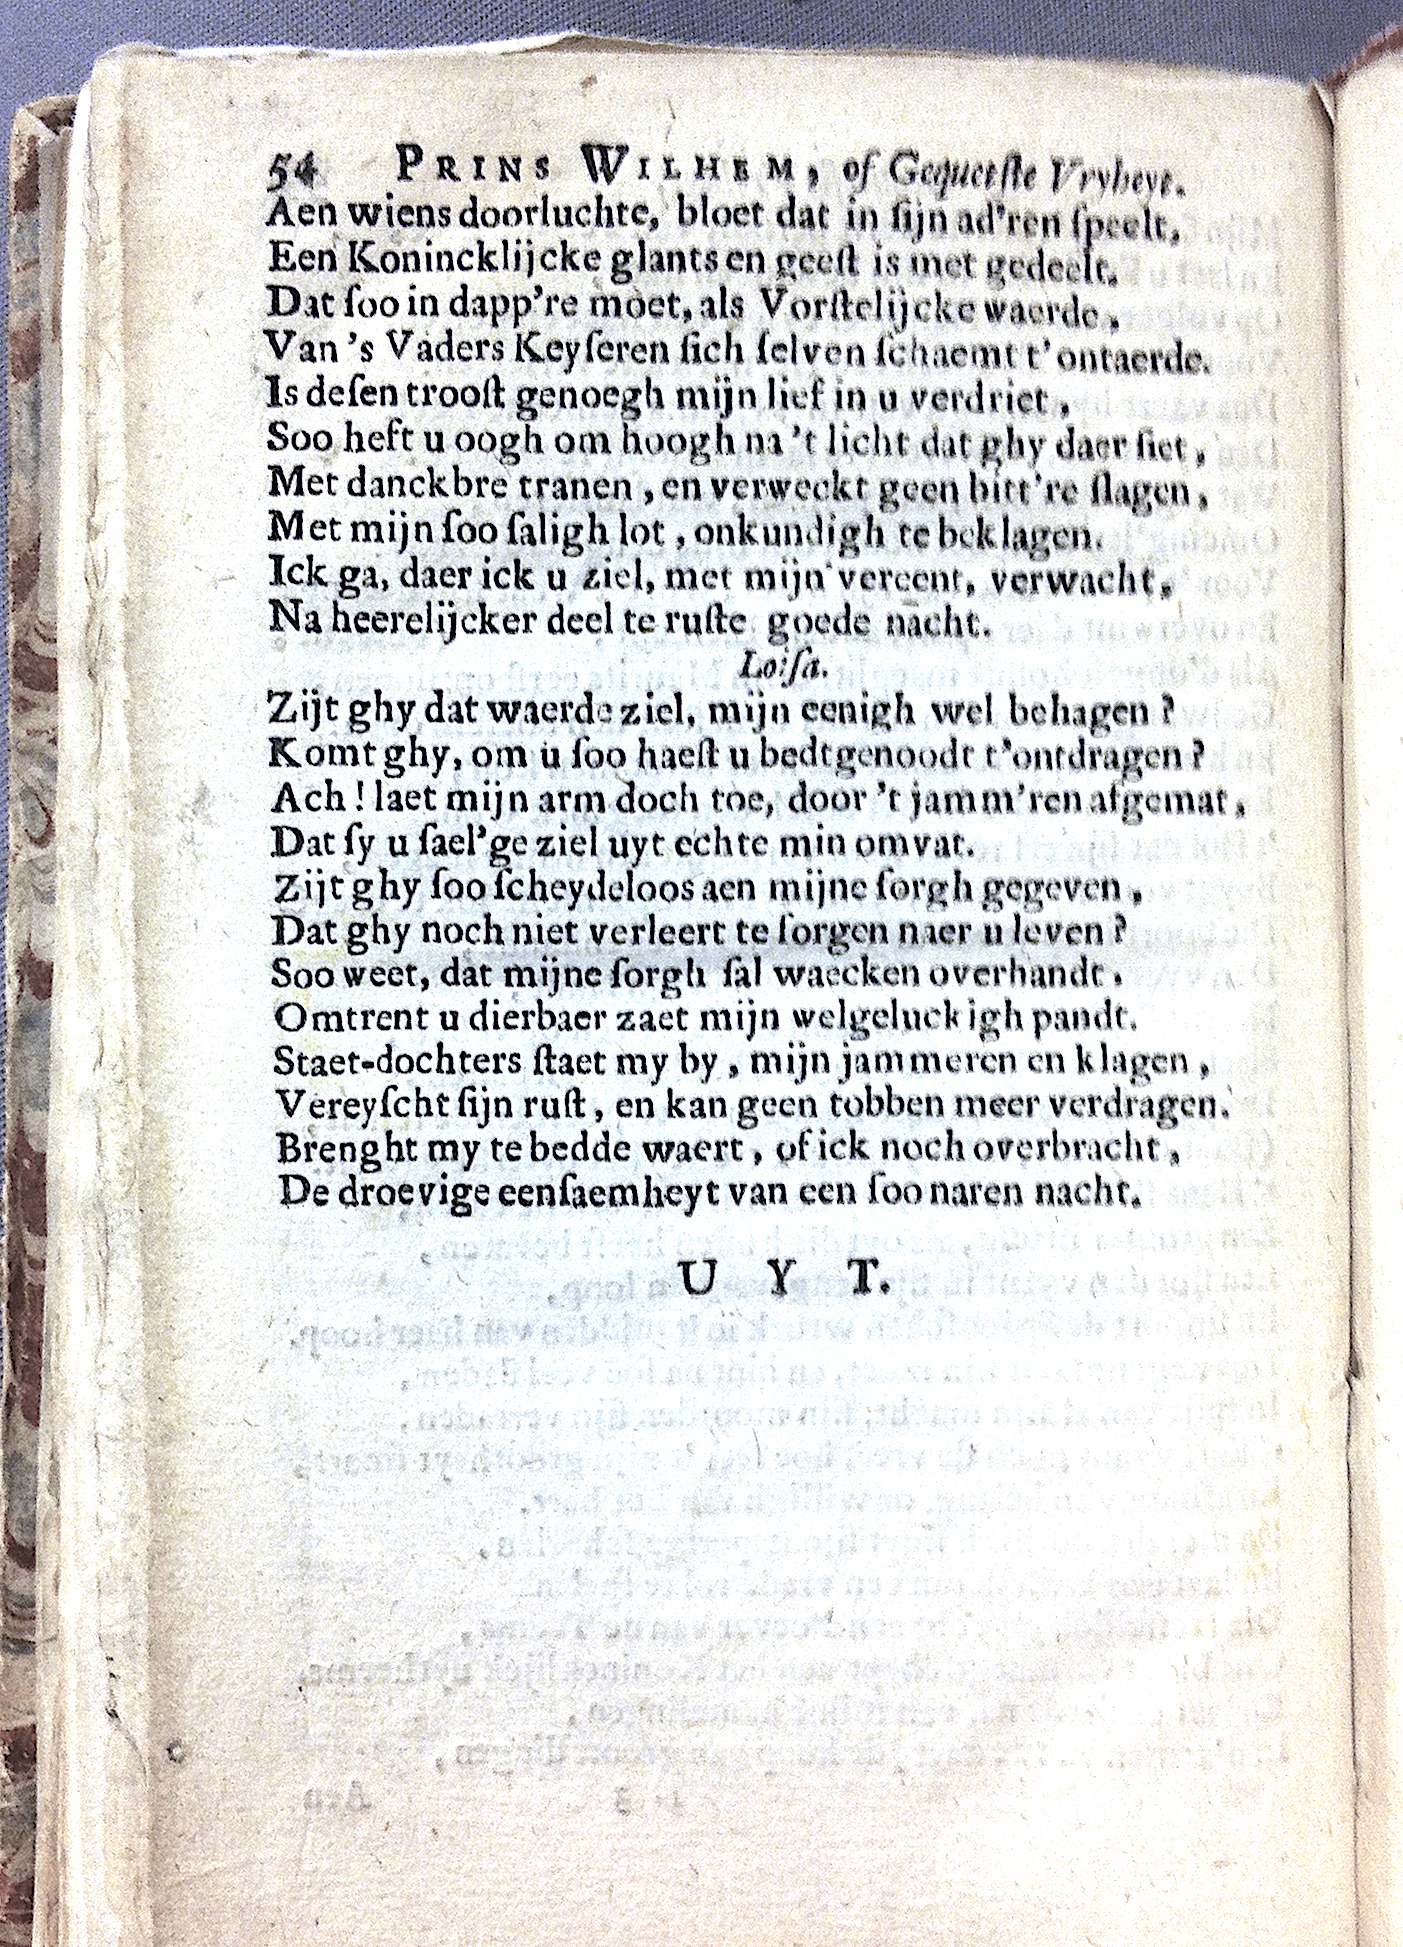 54 PRINS WILHEM, of Gequetste Vryheyt.
Aen wiens doorluchte, bloet dat in ſijn ad'ren ſpeelt,
Een Konincklijcke glants en geeſt is met gedeelt.
Dat ſoo in dapp're moet, als Vorſtelijcke waerde,
Van 's Vaders Keyſeren ſich ſelven ſchaemt t'ontaerde.
Is deſen trooſt genoegh mijn lief in u verdriet,
Soo heft u oogh om hoogh na 't licht dat ghy daer ſiet,
Met danckbre tranen, en verweckt geen bitt're ſlagen,
Met mijn ſoo ſaligh lot, onkundigh te beklagen.
Ick ga, daer ick u ziel, met mijn vereent, verwacht,
Na heerelijcker deel te ruſte goede nacht.
Loiſa.
Zijt ghy dat waerde ziel, mijn eenigh wel behagen?
Komt ghy, om u ſoo haeſt u bedtgenoodt t'ontdragen?
Ach! laet mijn arm doch toe, door 't jamm'ren afgemat,
Dat ſy u ſael'ge ziel uyt echte min omvat.
Zijt ghy ſoo ſcheydeloos aen mijne ſorgh gegeven,
Dat ghy noch niet verleert te ſorgen naer u leven?
Soo weet, dat mijne ſorgh ſal waecken overhandt.
Omtrent u dierbaer zaet mijn welgeluckigh pandt.
Staet-dochters ſtaet my by, mijn jammeren en klagen,
Vereyſcht ſijn ruſt, en kan geen tobben meer verdragen.
Brenght my te bedde waert, of ick noch overbracht,
De droevige eenſaemheyt van een ſoo naren nacht.
U Y T.